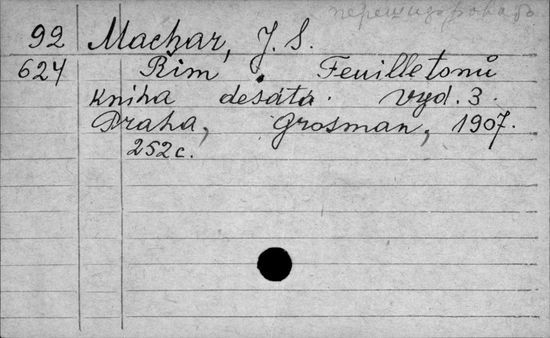 перешифровать
92 Machar, J. S.
624 Řím. Feuilletonů
kniha desátá. Vyd. 3.
Praha, Grosman, 1907.
252 с.